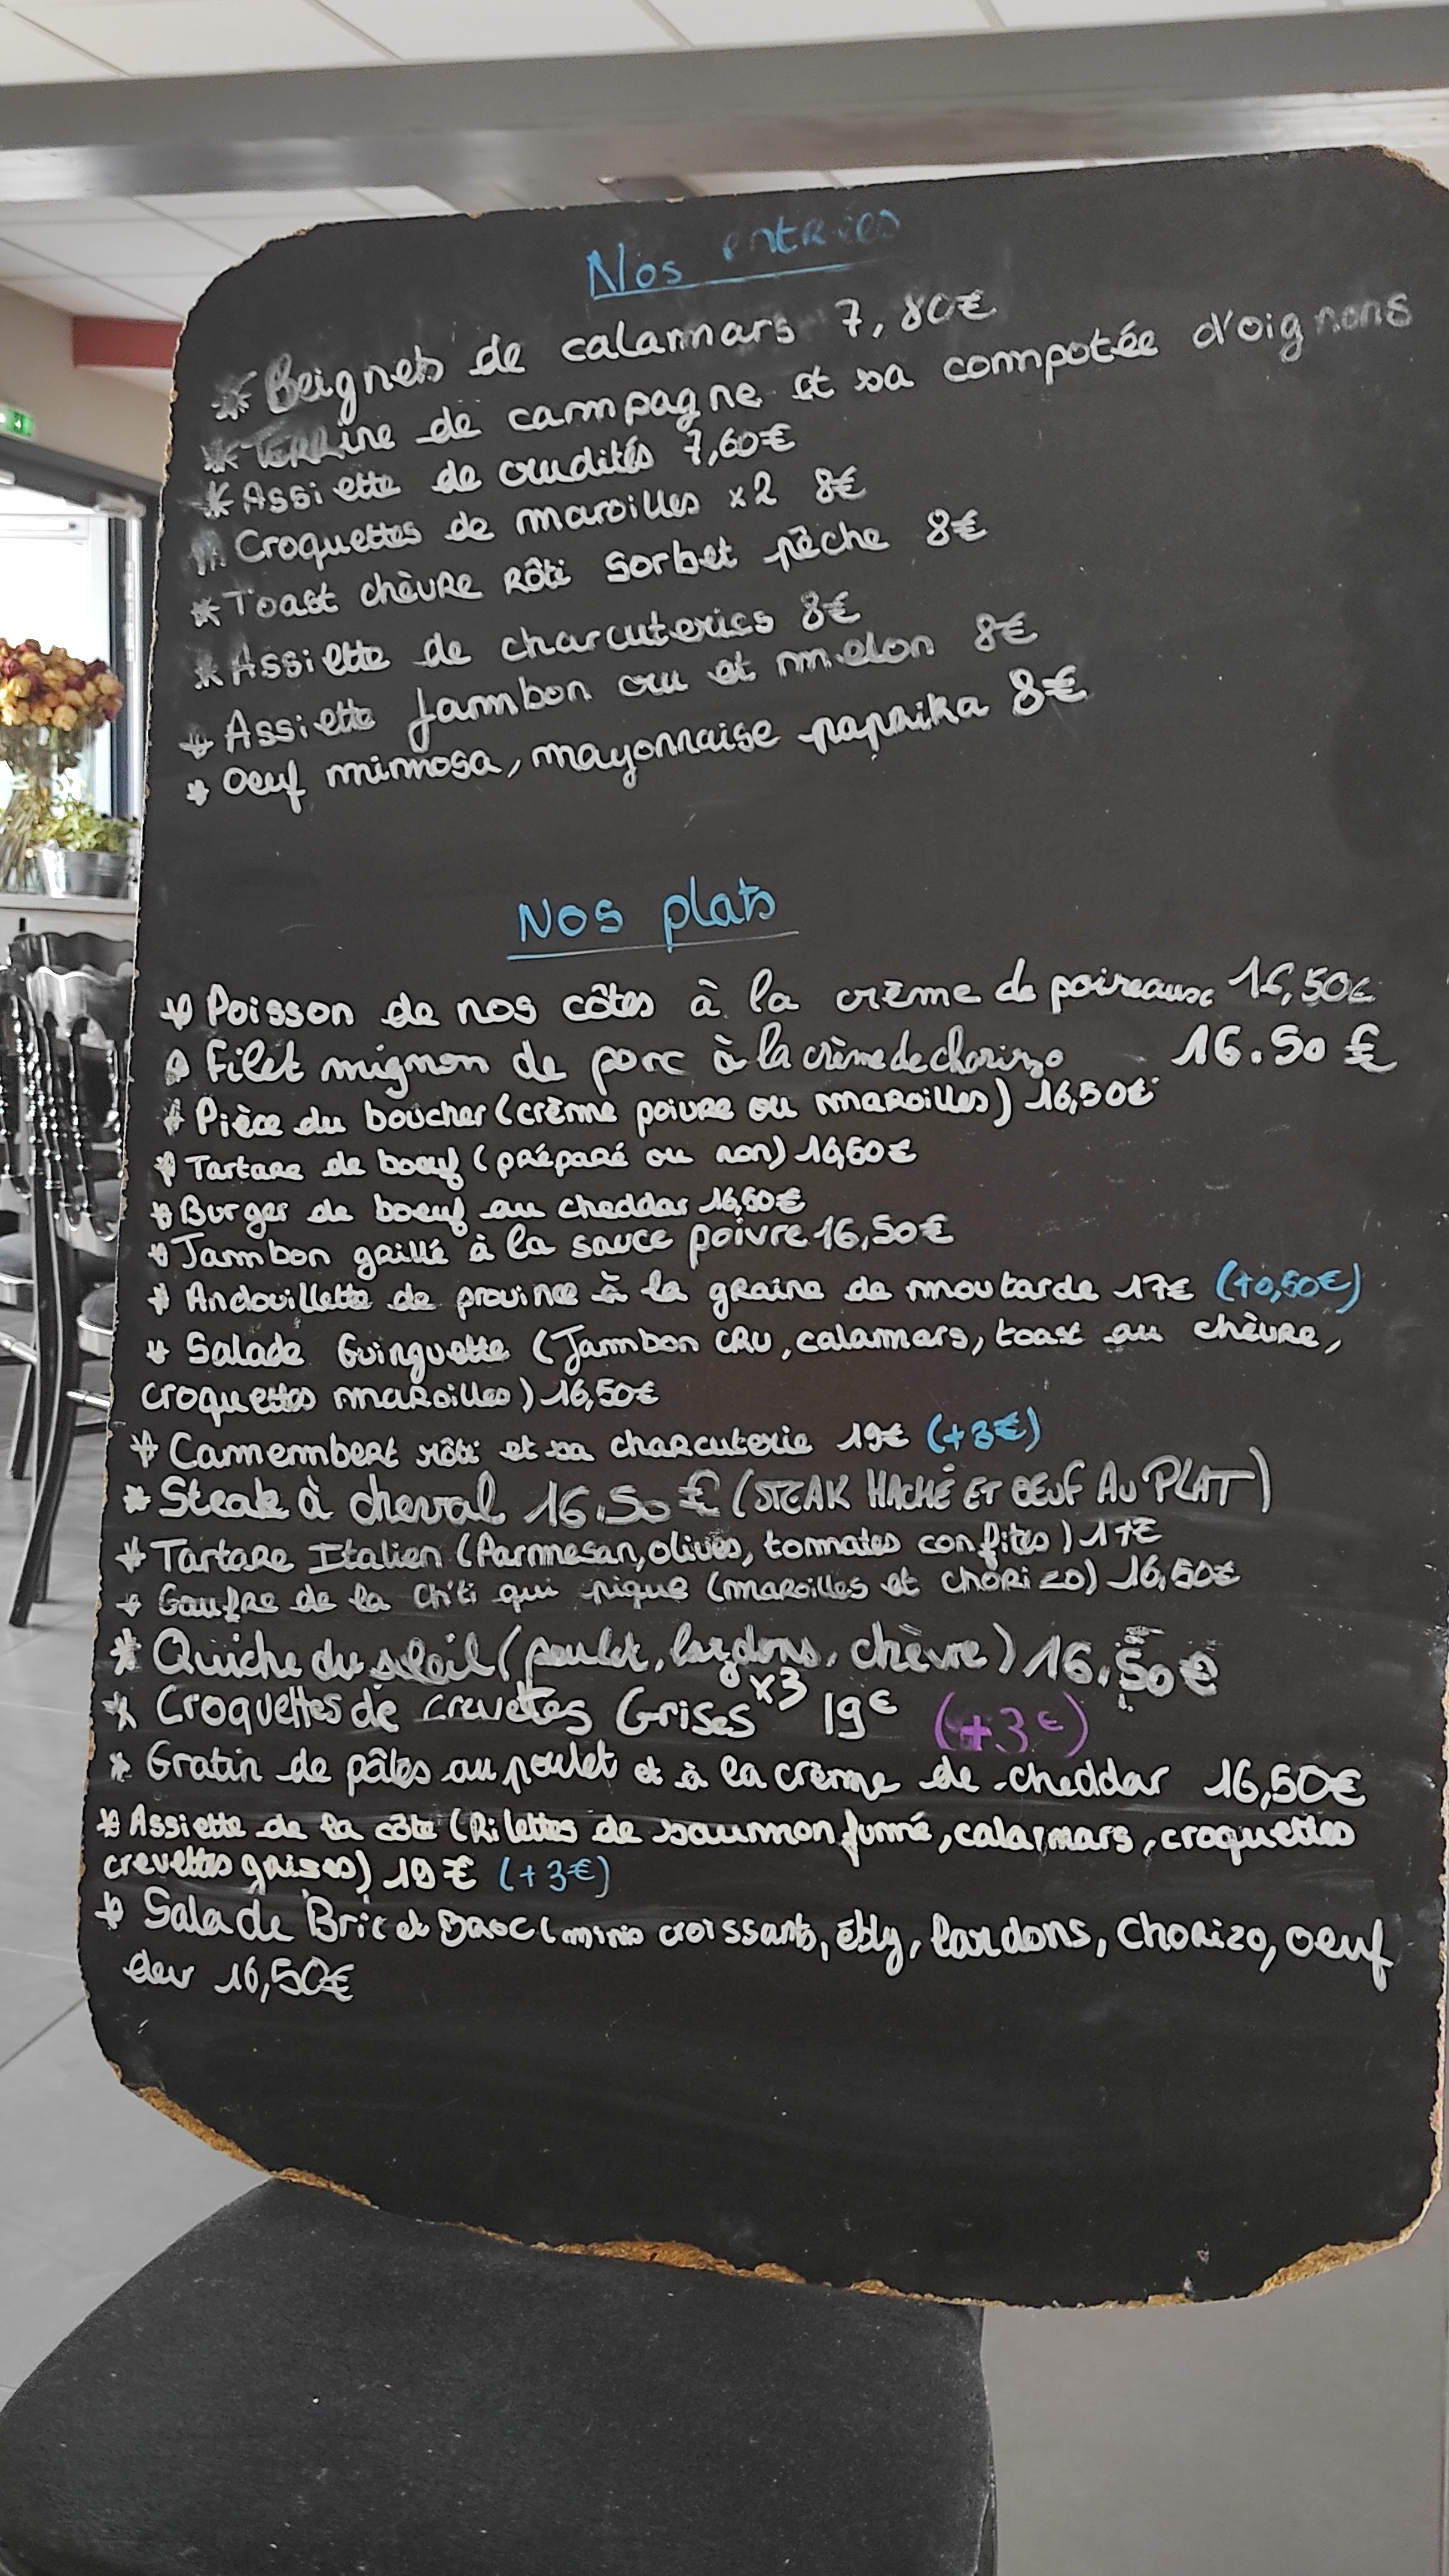 Nos entrées
* Beignets de calamars 7,80€
* Terrine de campagne et sa compotée d'oignons
* Assiette de crudités 7,60€
Croquettes de maroilles x2 8€
* Toast chèvre rôti sorbet pêche 8€
* Assiette de charcuteries 8€
* Assiette jambon cru et melon 8€
* Oeuf mimosa, mayonnaise paprika 8€
Nos plats
* Poisson de nos côtes à la crème de poireaux 16,50€
* Filet mignon de porc à la crème de chorizo 16.50 €
* Pièce du boucher (crème poivre ou maroilles) 16,50€
* Tartare de boeuf (préparé ou non) 16,50€
* Burger de boeuf au cheddar 16,50€
* Jambon grillé à la sauce poivre 16,50€
* Andouillette de province à la graine de moutarde 17€ (+0,50€)
* Salade Guinguette (Jambon cru, calamars, toast au chèvre,
croquettes maroilles) 16,50€
* Camembert rôti et sa charcuterie 19€ (+3€)
* Steak à cheval 16.50 € (STEAK HACHÉ ET OEUF AU PLAT)
* Tartare Italien (Parmesan, olives, tomates confites) 17€
* Gaufre de la Ch'ti qui pique (maroilles et chorizo) 16,50€
* Quiche du soleil (poulet, lardons, chèvre) 16.50€
* Croquettes de crevettes Grises x3 19€ (+3€)
* Gratin de pâtes au poulet et à la crème de cheddar 16,50€
* Assiette de la côte (Rilettes de saumon fumé, calamars, croquettes
crevettes grises) 19€ (+3€)
* Salade Bric et Broc (minis croissants, ébly, lardons, chorizo, oeuf
dur 16,50€